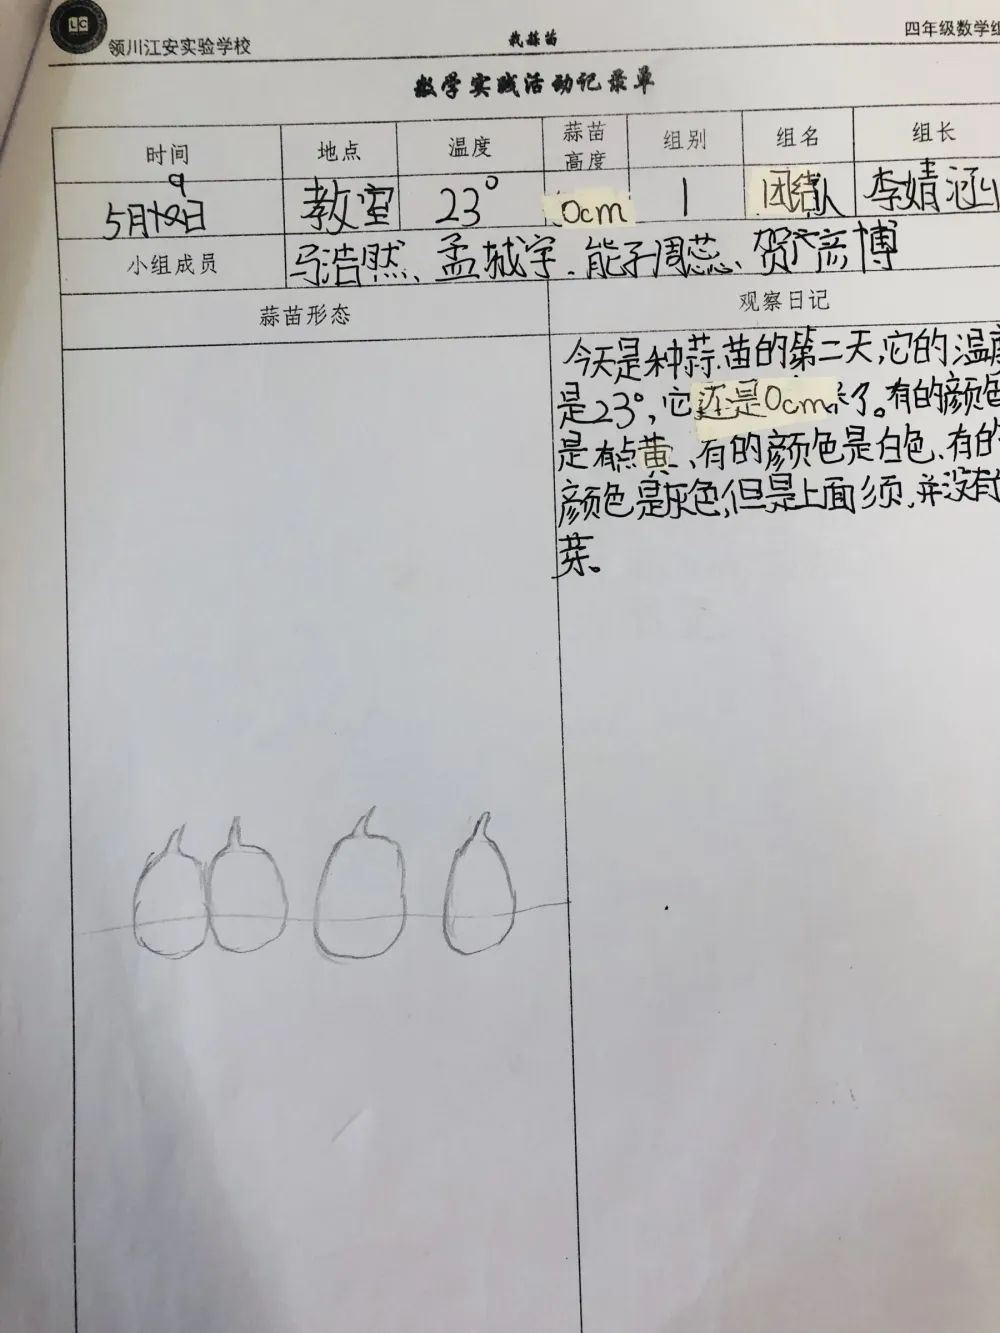 LC
领川江安实验学校
栽蒜苗
四年级数学组
数学实践活动记录单
时间 地点 温度 蒜苗高度 组别 组名 组长
5月9日 教室 23° 0cm 1 团结队 李婧涵
小组成员 马浩然、孟城宇、能子周蕊、贺彦博
蒜苗形态 观察日记
今天是种蒜苗的第二天,它的温度
是23°,它还是0cm 了。有的颜色
是有点黄、有的颜色是白色、有的
颜色是灰色,但是上面须,并没有
芽。